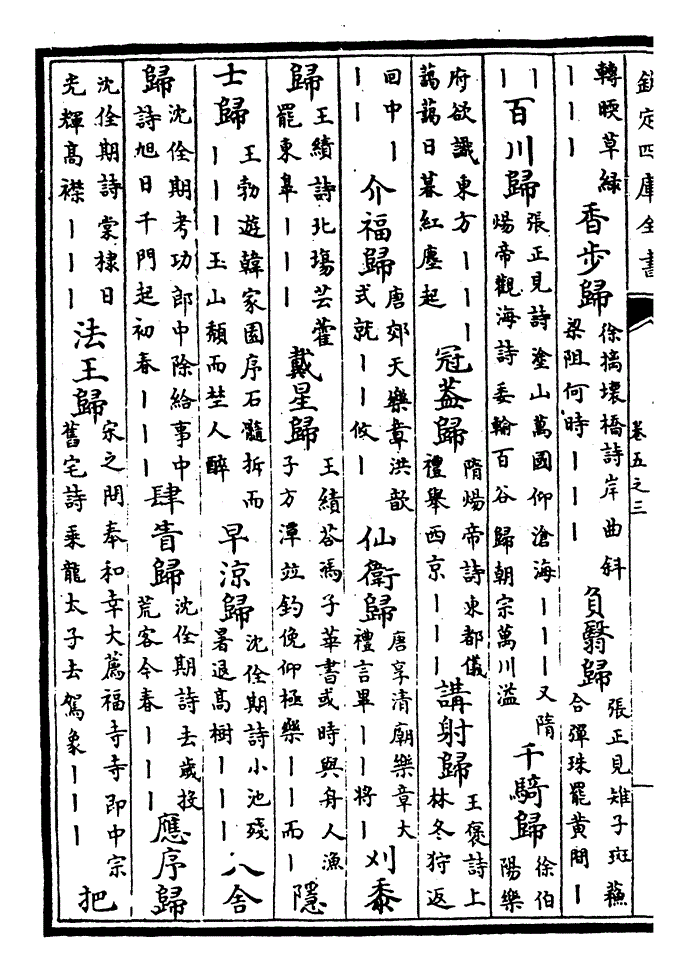 欽定四庫全書 卷五之三
轉暎草緑丨丨丨香步歸徐摛壊橋詩岸曲斜梁阻何時丨丨丨負翳歸張正見雉子斑蘇合彈珠罷黄閒丨
丨丨百川歸張正見詩塗山萬國仰滄海丨丨丨又隋煬帝觀海詩委輸百谷歸朝宗萬川溢千騎歸徐伯陽樂
府欲識東方丨丨丨藹藹日暮紅塵起冠葢歸隋煬帝詩東都儀禮舉西京丨丨丨講射歸王褒詩上林冬狩返
回中丨丨丨介福歸唐郊天樂章洪歆式就丨丨攸丨仙衛歸唐享清廟樂章大禮言畢丨丨將丨刈黍
歸王績詩北塲芸藿罷東臯丨丨丨戴星歸王績荅馮子華書或時與舟人漁子方潭竝釣俛仰極樂丨丨而丨隱
士歸王勃遊韓家園序石髓拆而丨丨丨玉山頽而埜人醉早涼歸沈佺期詩小池殘暑退高樹丨丨丨八舍
歸沈佺期考功郎中除給事中詩旭日千門起初春丨丨丨肆眚歸沈佺期詩去歲投荒客今春丨丨丨應序歸
沈佺期詩棠棣日光輝高襟丨丨丨法王歸宋之問奉和幸大薦福寺寺即中宗舊宅詩乘龍太子去駕象丨丨丨把